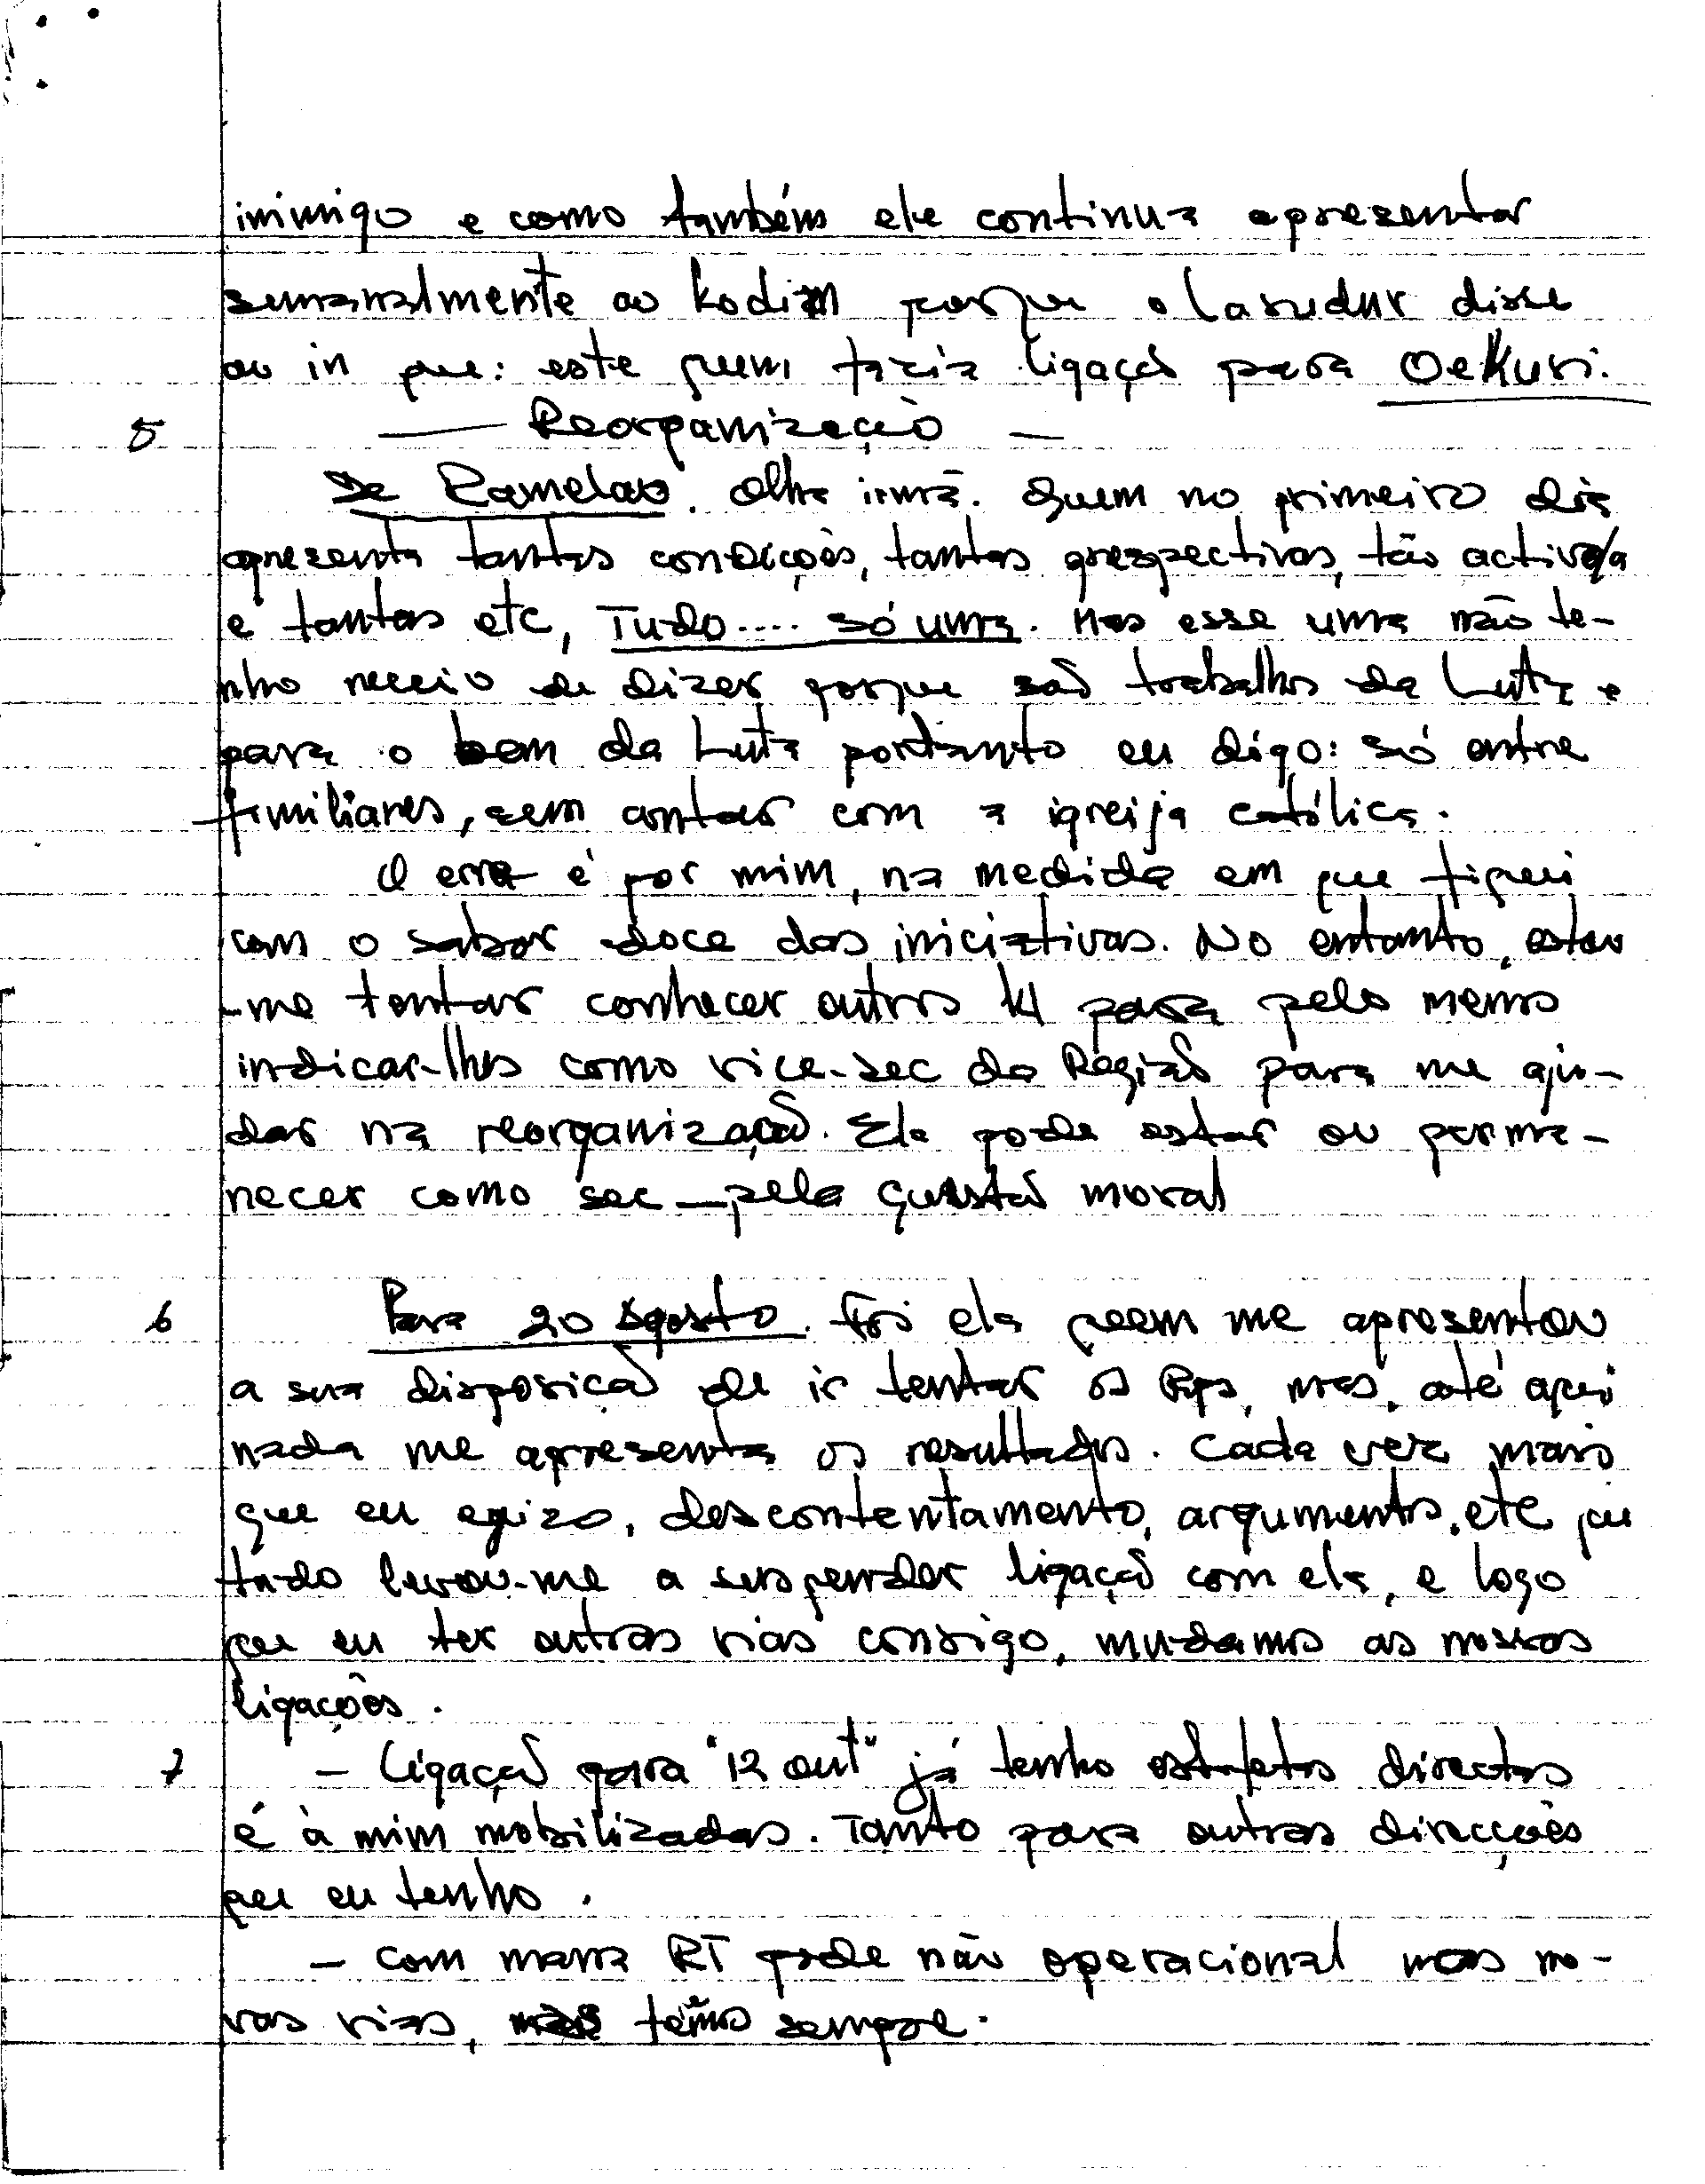 inimigo e como também ele continua apresentar
semanalmente ao Kodim porque o Lasudur disse
ao in que: este quem fazia ligação para OeKusi.
5 — Reorganização —
De Ramelao. Olha irmã. Quem no primeiro dia
apresenta tantas condições, tantas prespectivas, tão activo/a
e tantas etc, Tudo.... só uma. Mas esse uma não te-
nho receio de dizer porque são trabalhos da Luta e
para o bem da Luta portanto eu digo: só entre
familiares, sem contar com a igreija católica.
O erro é por mim, na medida em que fiquei
com o sabor doce das iniciativas. No entanto, estou
-me tentar conhecer outros para pelo menos
indicar-lhes como vice-sec da Região para me aju-
dar na reorganização. Ela pode estar ou perma-
necer como sec — pela questão moral
6 Para 20 Agosto. Foi ela quem me apresentou
a sua disposição de ir tentar os Rps, mas, até aqui
nada me apresenta os resultados. Cada vez mais
que eu exizo, descontentamento, argumentos, etc que
tudo levou-me a suspender ligação com ela, e logo
que eu ter outras vias consigo, mudamos as nossas
ligações.
7 - Ligação para "12 out" já tenho estafetas directas
é à mim mobilizadas. Tanto para outras direcções
que eu tenho.
- Com mana RT pode não operacional mas no-
vas vias, mas têmos sempre.